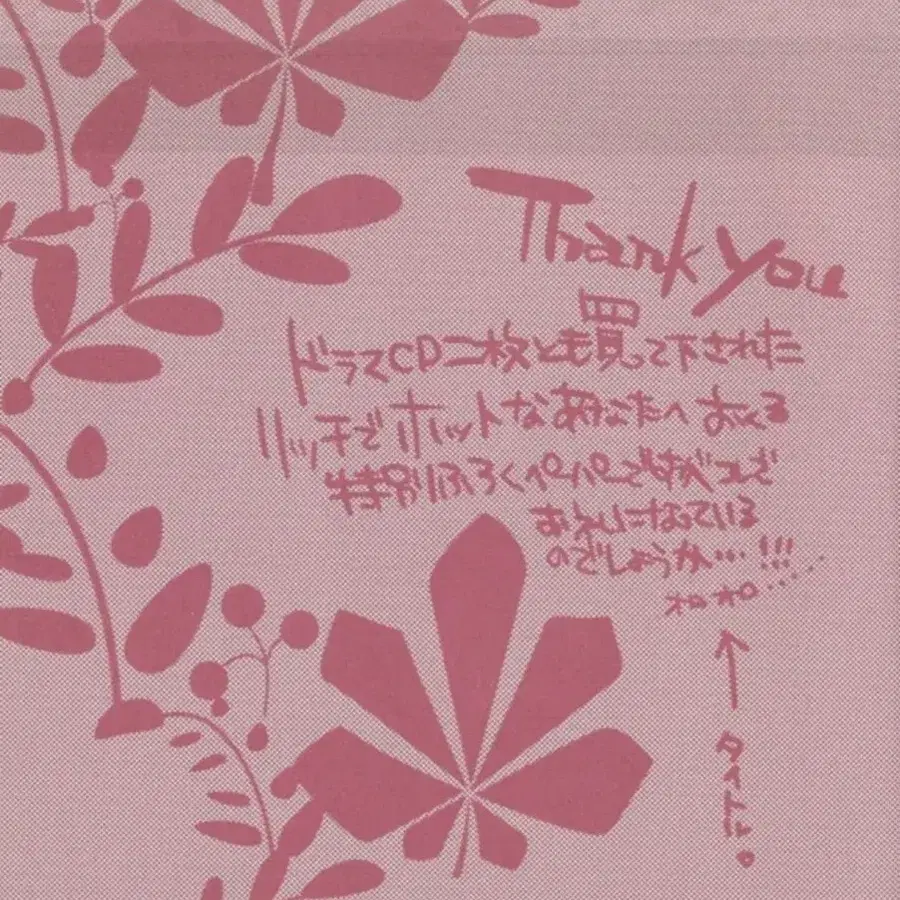 Thank you
ドラマCD二枚とも買って下された
リッチでホットなあなたへおくる
特別ふろくペーパーですがコレで
おんになっている
のでしょうか…!!!
オロオロ……
↑
タイトル。